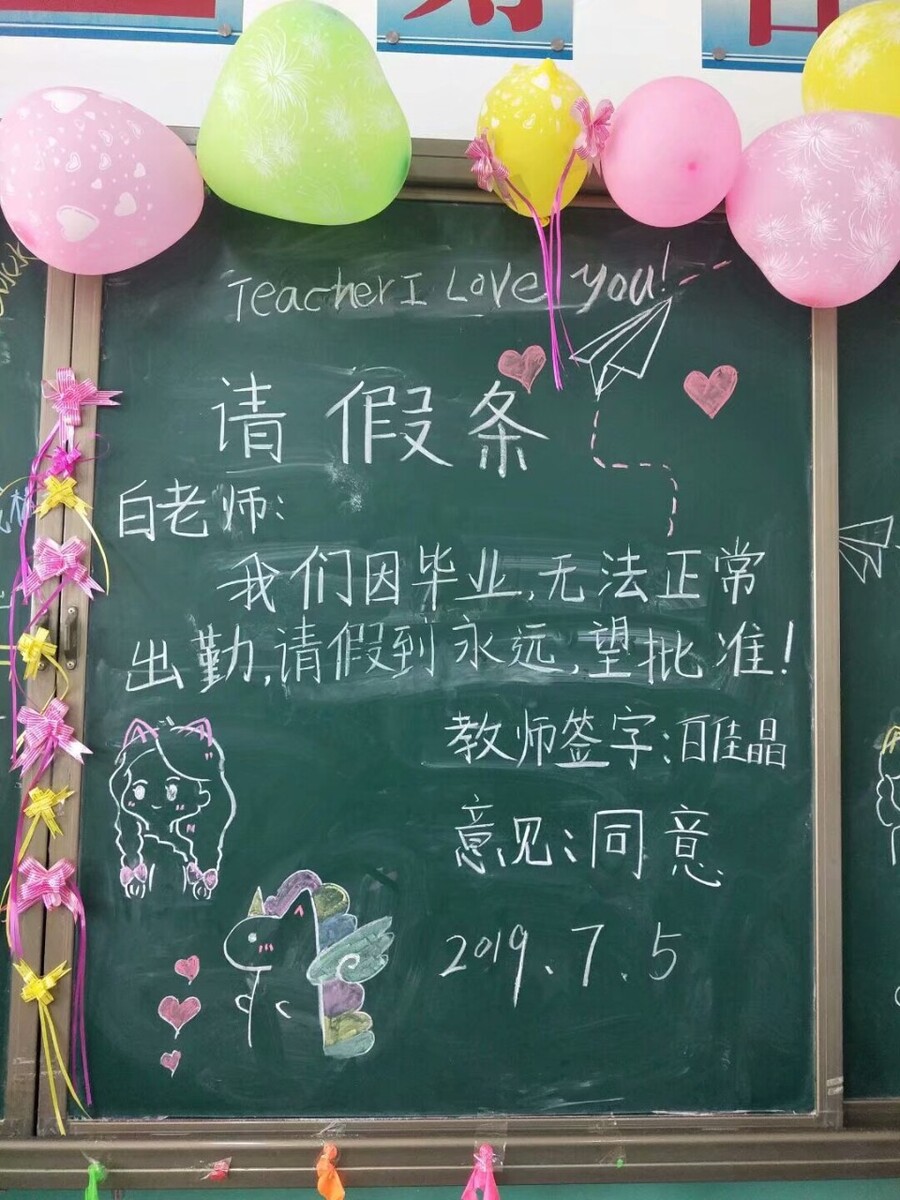 Teacher I Love you!
请假条
白老师:
我们因毕业,无法正常
出勤,请假到永远,望批准!
教师签字:白佳晶
意见:同意
2019.7.5